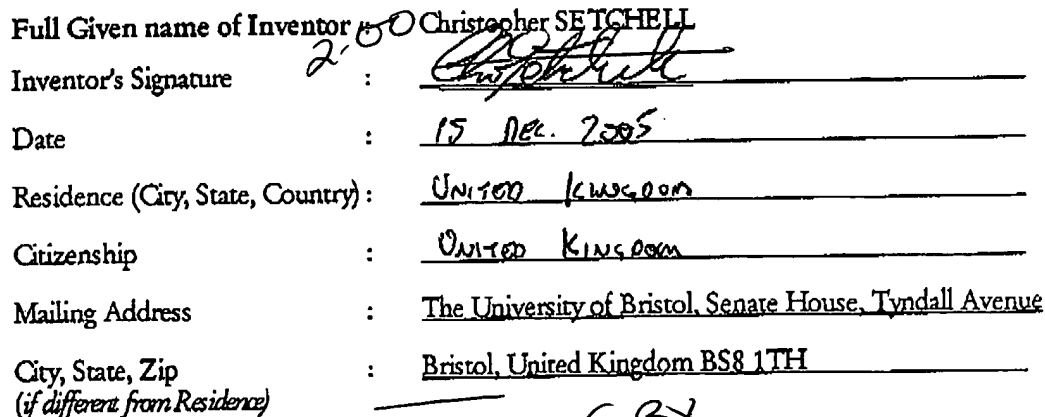 Full Given name of Inventor : Christopher SETCHELL
2-00
Inventor's Signature :
Date : 15 Dec. 2005
Residence (City, State, Country) : UNITED KINGDOM
Citizenship : UNITED KINGDOM
Mailing Address : The University of Bristol, Senate House, Tyndall Avenue
City, State, Zip : Bristol, United Kingdom BS8 1TH
(if different from Residence)
GBX